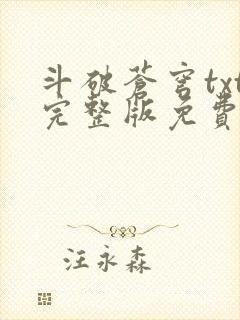 斗破蒼穹txt
完整版免費
汪永森